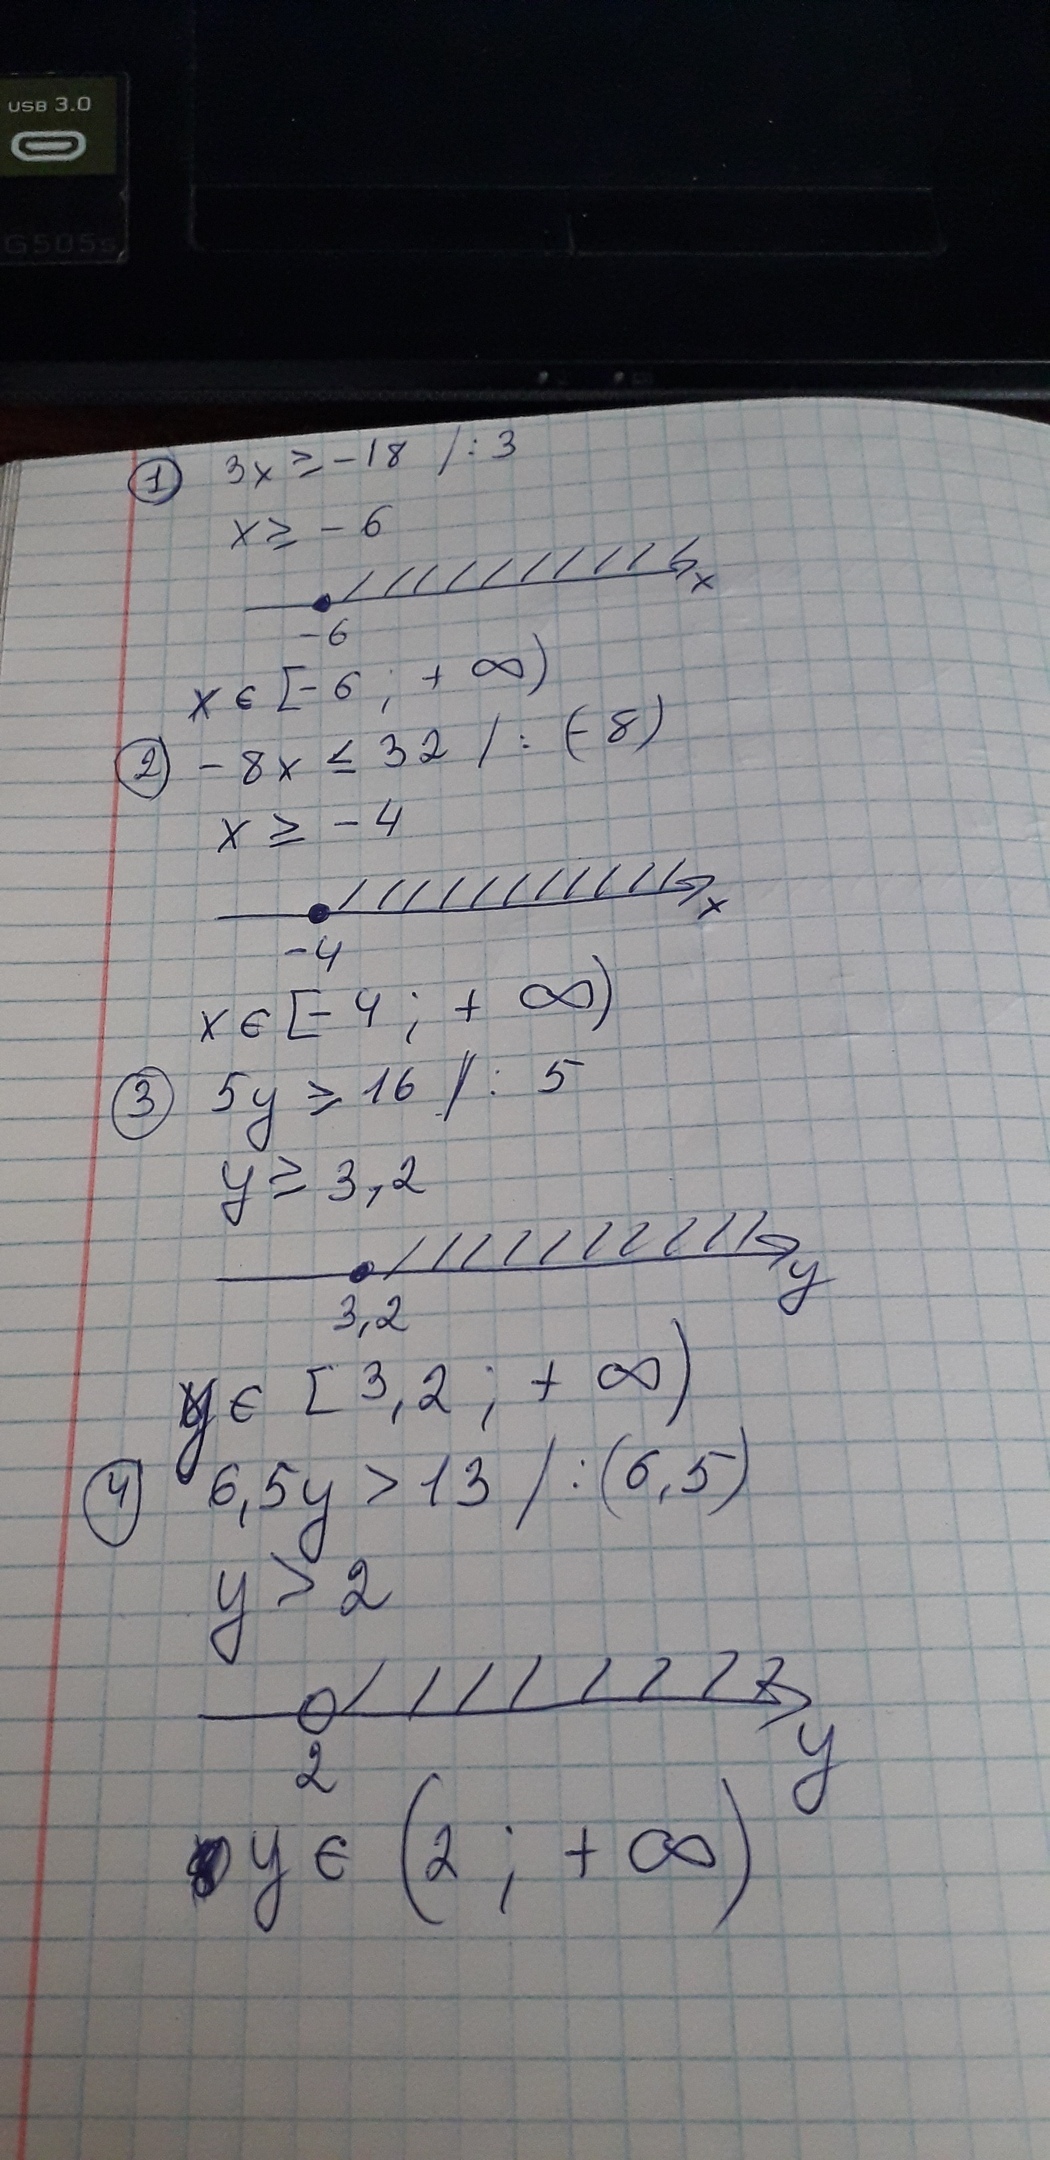 USB 3.0
G505s
① 3x ≥ -18 /: 3
x ≥ - 6
x
-6
x ϵ [-6 ; + ∞)
② - 8x ≤ 32 / : (-8)
x ≥ - 4
x
-4
x ϵ [-4 ; + ∞)
③ 5y ≥ 16 /: 5
y ≥ 3,2
y
3,2
y ϵ [3,2 ; + ∞)
④ 6,5y > 13 / :(6,5)
y > 2
y
2
y ϵ (2 ; + ∞)